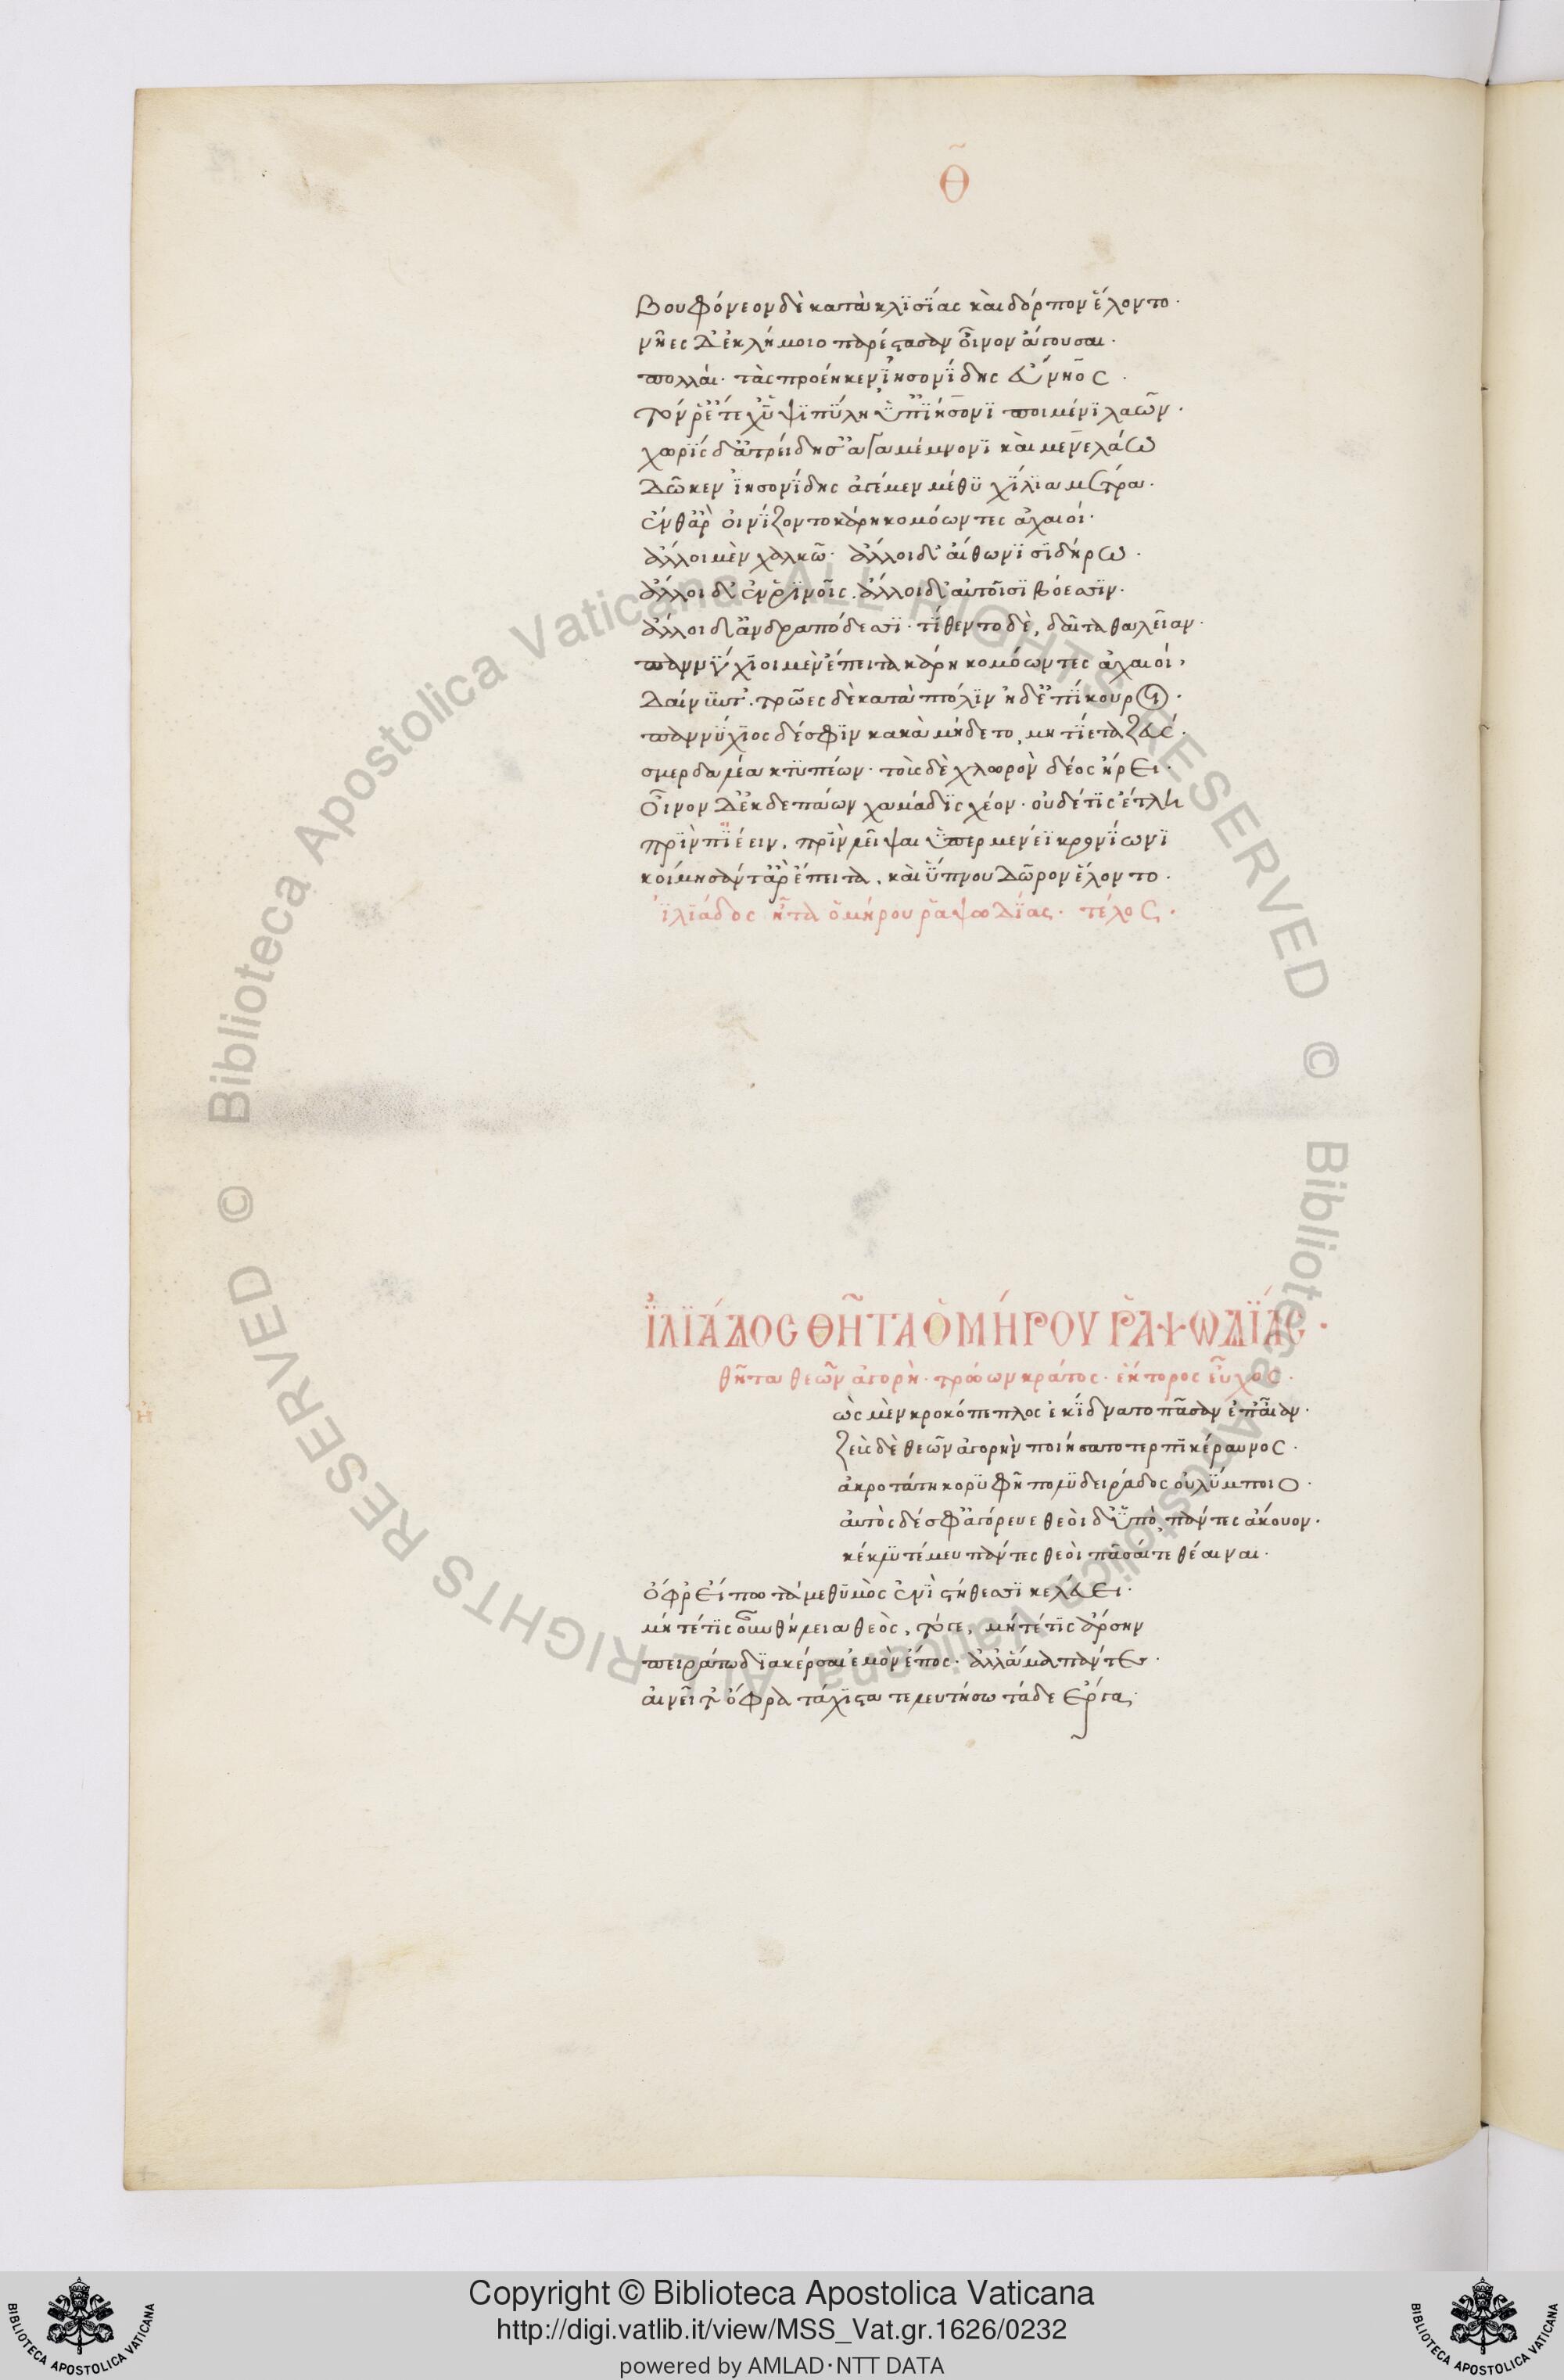 Θ
Βουφόνεον δὲ κατὰ κλϊσΐας καὶ δόρπον ἕλοντο·
νῆες δ' ἐκ λήμοιο παρέστασαν οἶνον ἄγουσαι·
πολλάι· τὰς προέηκεν ϊησονΐδης ἔυνηος·
τόν ῥ' ἔτεχ' ὑψϊπύλη ὑπ' ϊήσονϊ ποιμένϊ λαῶν·
χωρΐς δ' ἀτρείδης ἀγαμέμνονϊ καὶ μενελάω
δῶκεν ϊησονΐδης ἀγέμεν μέθϋ χΐλϊα μέτρα·
ἔνθ' ἄρ' οἰνΐζοντο κάρηκομόωντες ἀχαιοί·
ἄλλοι μὲν χαλκῶ· ἄλλοι δ' αἴθωνϊ σϊδήρω·
ἄλλοι δ' ἐν ῥϊνοῖς. ἄλλοι δ' αὐτοῖσϊ βόεσϊν·
ἄλλοι δ' ἀνδραπόδεσϊ· τΐθεντο δὲ, δαῖτα θαλεῖαν·
παννΰχϊοι μὲν ἔπειτα κάρη κομόωντες ἀχαιοί,
δαίνϋντ'. τρῶες δὲ κατὰ πτόλϊν ἠδ' ἐπΐκουροι·
παννΰχϊος δέ σφϊν κακὰ μήδετο, μητΐετα ζεύς·
σμερδαλέα κτϋπέων· τοὺς δὲ χλωρὸν δέος ἥρει·
οἶνον δ' ἐκ δεπάων χαμάδϊς χέον· οὐδέ τϊς ἔτλη
πρϊὶν πϊέειν. πρϊὶν λεῖψαι ὑπερμενέϊ κρονΐωνϊ
κοίμησαντ' ἄρ' ἔπειτα, καὶ ὕπνου δῶρον ἕλοντο·
ϊλϊάδος ἦτα ὁμήρου ῥαψωδΐας· τέλος·
ΪΛΪΆΔΟΣ ΘΗ͂ΤΑ ὉΜΉΡΟΥ ῬΑΨΩΔΪ́ΑΣ·
θῆτα θεῶν ἀγορὴ· τρώων κράτος· ἕκτορος εὖχος·
ὡς μὲν κροκόπεπλος ἐκΐδνατο πᾶσαν ἐπ' αἶαν·
ζεὺς δὲ θεῶν ἀγορὴν ποιήσατο τερπϊκέραυνος·
ἀκροτάτη κορϋφῆ πολϋδειράδος οὐλΰμποιο·
αὐτὸς δέ σφ' ἀγόρευε θεὸι δ' ὑπὸ πάντες ἄκουον·
κέκλϋτέ μευ πάντες θεὸι πᾶσάι τε θέαιναι·
ὄφρ' εἴπω τά με θϋμὸς ἐνϊὶ στήθεσϊ κελεύει·
μήτέ τϊς οὖν θήλεια θεὸς, τόγε, μήτέ τϊς ἄρσην
πειράτω δϊακέρσαι ἐμὸν ἔπος· ἀλλ' ἅμα πάντες·
αἰνεῖτ' ὄφρα τάχϊστα τελευτήσω τάδε ἔργα·
Copyright © Biblioteca Apostolica Vaticana
http://digi.vatlib.it/view/MSS_Vat.gr.1626/0232
powered by AMLAD·NTT DATA
BIBLIOTECA APOSTOLICA VATICANA
BIBLIOTECA APOSTOLICA VATICANA
© Biblioteca Apostolica Vaticana ALL RIGHTS RESERVED
© Biblioteca Apostolica Vaticana ALL RIGHTS RESERVED